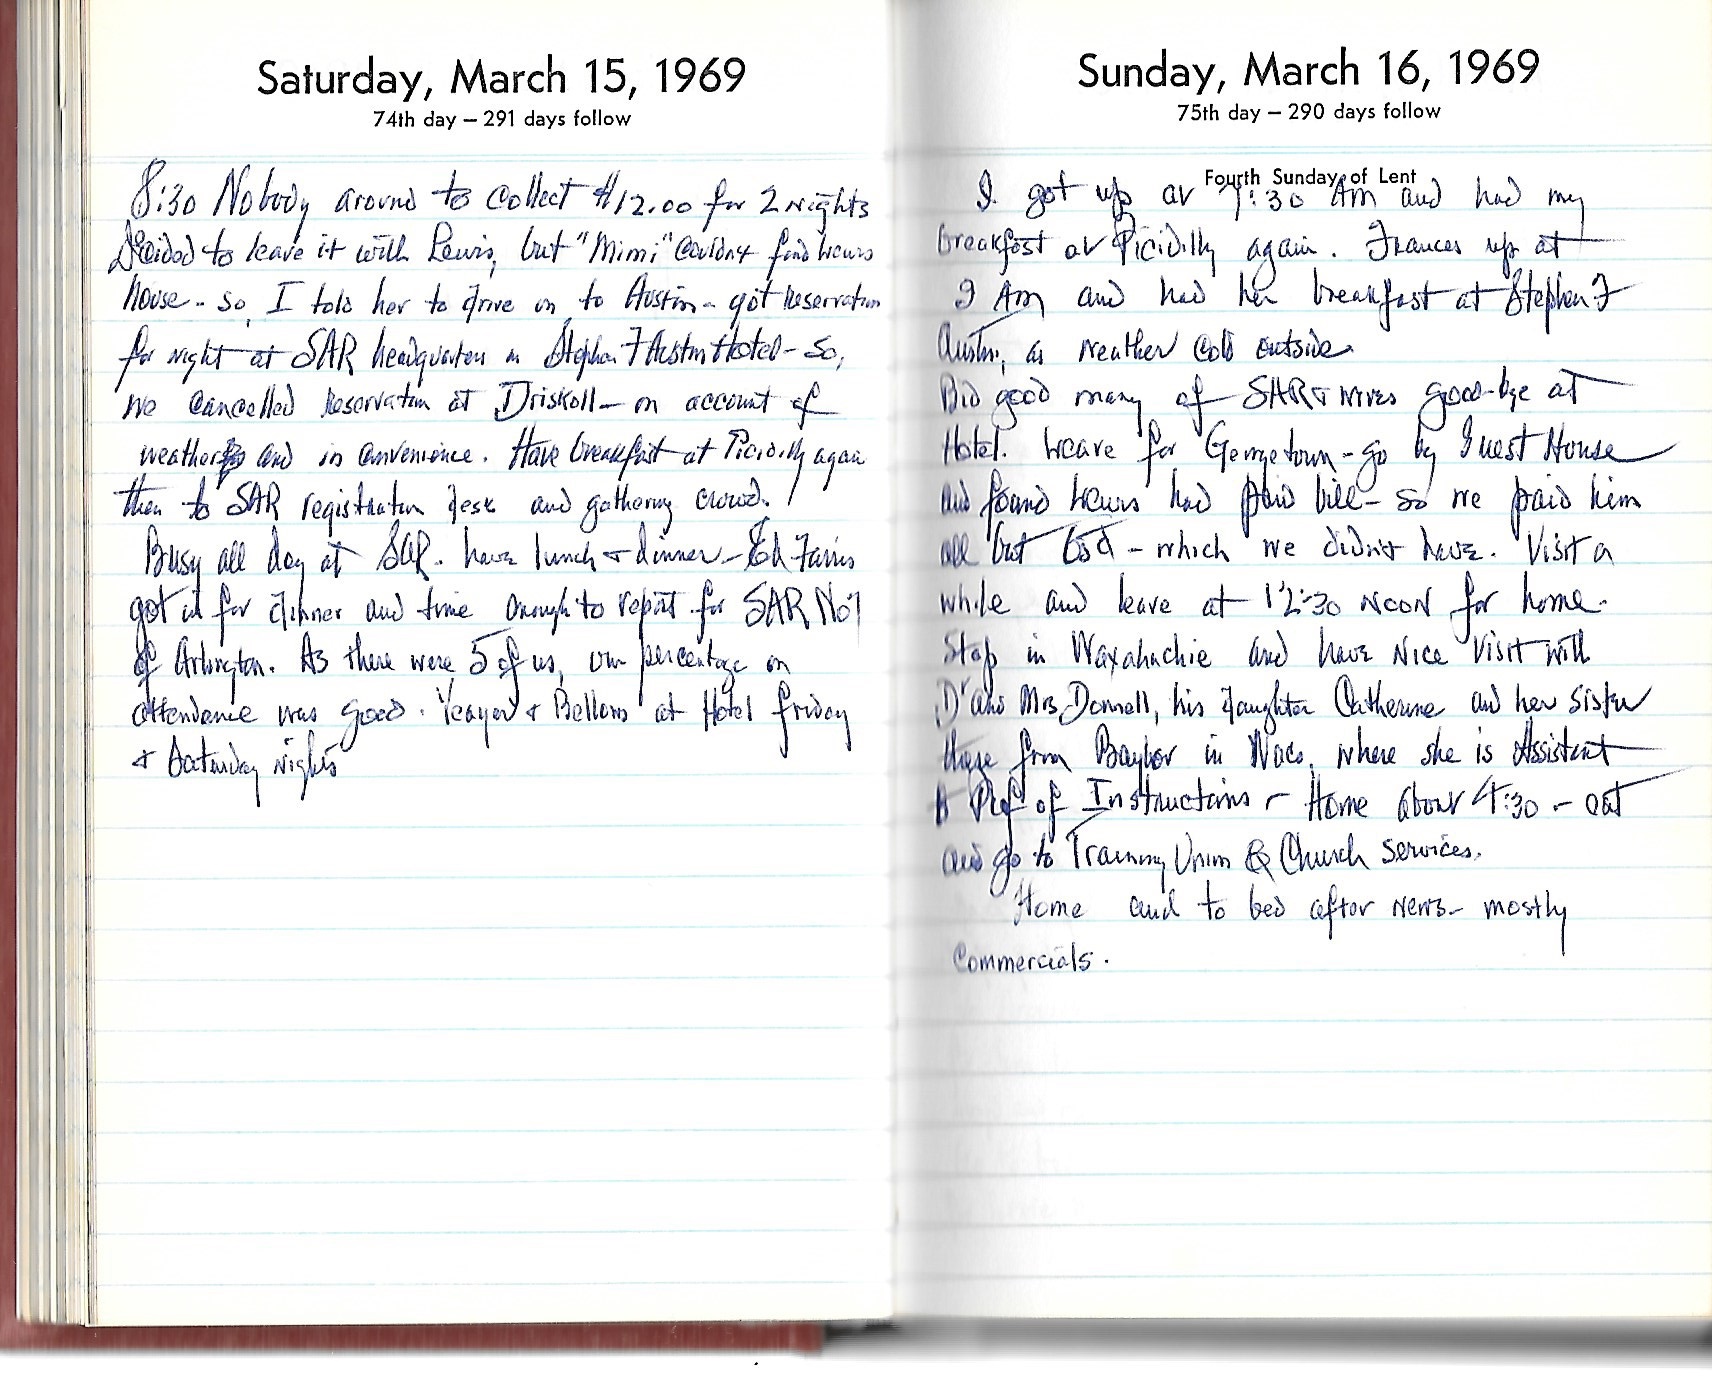 Saturday, March 15, 1969
74th day – 291 days follow
8:30 Nobody around to collect $12.00 for 2 nights
Decided to leave it with Lewis, but "Mimi" couldn't find Lewis
house - so, I told her to drive on to Austin - got reservation
for night at SAR headquarters in Stephen F Austin Hotel - so,
we cancelled reservation at Driskoll - on account of
weather and in convenience. Have breakfast at Picidilly again
then to SAR registration desk and gathering crowd.
Busy all day at SAR. have lunch + dinner - Ed Farris
got in for dinner and time enough to report for SAR No 1
of Arlington. As there were 5 of us, our percentage on
attendance was good. Yeager + Bellows at Hotel friday
+ Saturday nights
Sunday, March 16, 1969
75th day – 290 days follow
Fourth Sunday of Lent
I got up at 7:30 AM and had my
breakfast at Picidilly again. Frances up at
9 AM and had her breakfast at Stephen F
Austin, as weather cold outside.
Bid good many of SAR + wives good-bye at
Hotel. Leave for Georgetown - go by Guest House
and found Lewis had paid bill - so we paid him
all but - which we didn't have. Visit a
while and leave at 12:30 NOON for home.
Stop in Waxahachie and have Nice Visit with
Dr and Mrs Donnell, his daughter Catherine and her sister
there from Baylor in Waco, where she is Assistant
Prof of Instructions - Home about 4:30 - eat
and go to Training Union & Church services.
Home and to bed after news - mostly
Commercials.